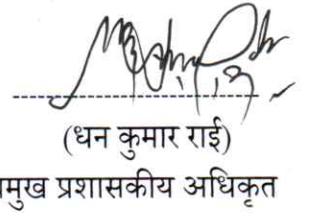 (धन कुमार राई)
मुख प्रशासकीय अधिकृत